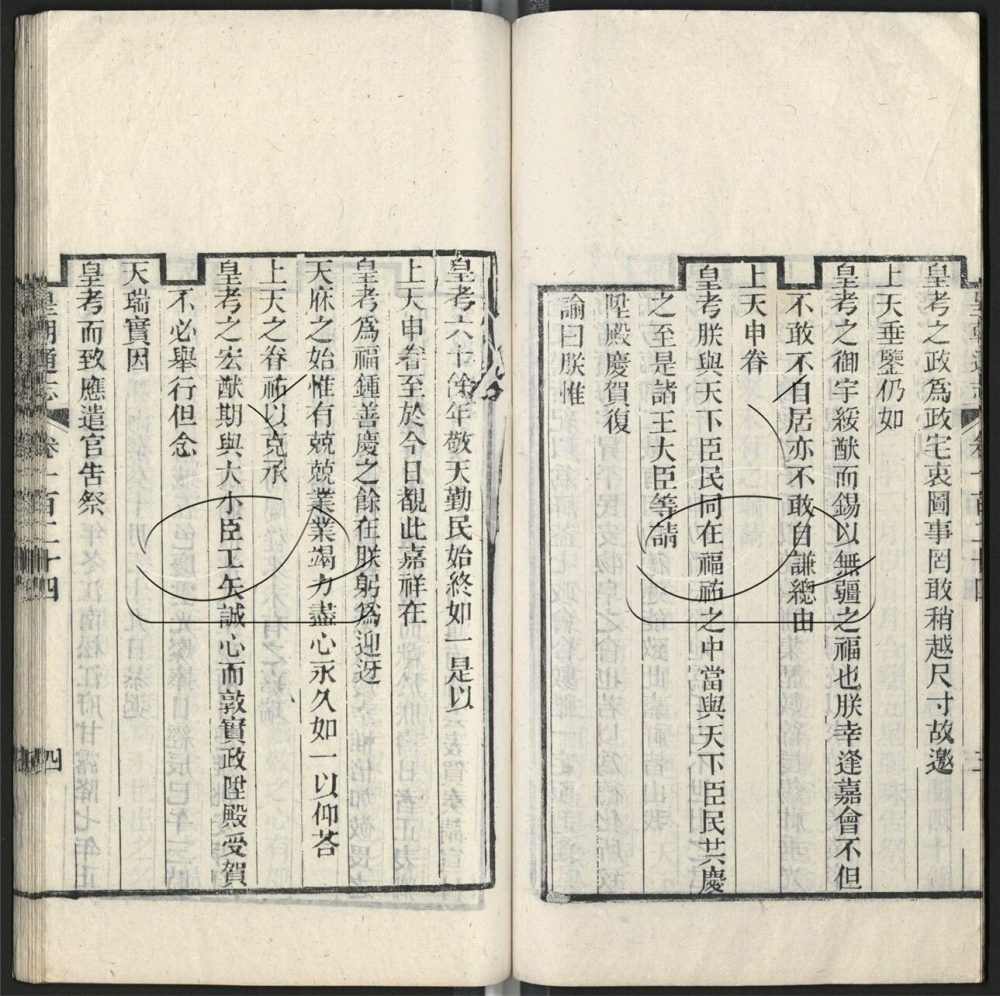 皇考之政為政宅衷圖事罔敢稍越尺寸故邀
上天垂鑒仍如
皇考之御宇綏猷而錫以無疆之福也朕幸逢嘉會不但
不敢不自居亦不敢自謙總由
上天申眷
皇考朕與天下臣民同在福祐之中當與天下臣民共慶
之至是諸王大臣等請
陞殿慶賀復
諭曰朕惟
皇考六十餘年敬天勤民始終如一是以
上天申眷至於今日覩此嘉祥在
皇考為福鍾善慶之餘在朕躬為迎迓
天庥之始惟有兢兢業業竭力盡心永久如一以仰荅
上天之眷祐以克承
皇考之宏猷期與大小臣工矢誠心而敦實政陞殿受賀
不必舉行但念
天瑞實因
皇考而致應遣官告祭
皇朝通志 卷一百二十四 四